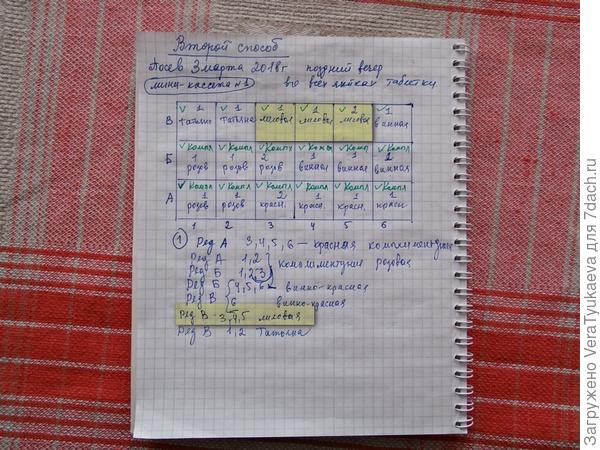 Второй способ
Посев 3 марта 2018 г поздний вечер
мини-кассета №1 во всех ячейках таблетки
В ✓ 1 Татьяна ✓ 1 Татьяна ✓ 1 лиловая ✓ 1 лиловая ✓ 2 лиловая ✓ 1 винная
Б ✓ Компл 1 розов ✓ Компл 1 розов ✓ Компл 2 розов ✓ Компл 1 винная ✓ Компл 1 винная ✓ Компл винная
А ✓ Компл 1 розов ✓ Компл 1 розов ✓ Компл 2 красн. ✓ Компл 1 красн. ✓ Компл 1 красн. ✓ Компл 1 красн
1 2 3 4 5 6
① Ряд А 3,4,5,6 — красная
Ряд А 1,2 розовая
Ряд Б 1,2,3
Ряд Б 4,5,6 — винно-красная
Ряд В 6 винно-красная
Ряд В - 3,4,5 лиловая
Ряд В 1,2 Татьяна
Загружено VeraTyukaeva для 7dach.ru